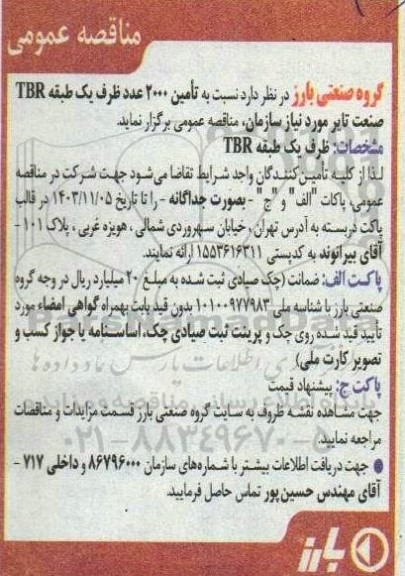 مناقصه عمومی
گروه صنعتی بارز در نظر دارد نسبت به تأمین ۲۰۰۰ عدد ظرف یک طبقه TBR
صنعت تایر مورد نیاز سازمان، مناقصه عمومی برگزار نماید.
مشخصات: ظرف یک طبقه TBR
لذا از کلیه تأمین کنندگان واجد شرایط تقاضا می‌شود جهت شرکت در مناقصه
عمومی، پاکات "الف" و "ج" - بصورت جداگانه - را تا تاریخ ۱۴۰۳/۱۱/۰۵ در قالب
پاکت دربسته به آدرس تهران، خیابان سهروردی شمالی، هویزه غربی، پلاک ۱۰۱ -
آقای بیرانوند به کدپستی ۱۵۵۳۶۱۶۳۱۱ ارائه نمایند.
پاکت الف: ضمانت (چک صیادی ثبت شده به مبلغ ۲۰ میلیارد ریال در وجه گروه
صنعتی بارز با شناسه ملی ۱۰۱۰۰۹۷۷۹۸۳ بدون قید بابت بهمراه گواهی امضاء مورد
تایید قید شده روی چک و پرینت ثبت صیادی چک، اساسنامه یا جواز کسب و
تصویر کارت ملی)
پاکت ج: پیشنهاد قیمت
جهت مشاهده نقشه ظروف به سایت گروه صنعتی بارز قسمت مزایدات و مناقصات
مراجعه نمایید.
● جهت دریافت اطلاعات بیشتر با شماره‌های سازمان ۸۶۷۹۶۰۰۰ و داخلی ۷۱۷ -
آقای مهندس حسین‌پور تماس حاصل فرمایید.
بارز
۰۲۱-۸۸۳۴۹۶۷۰-۵